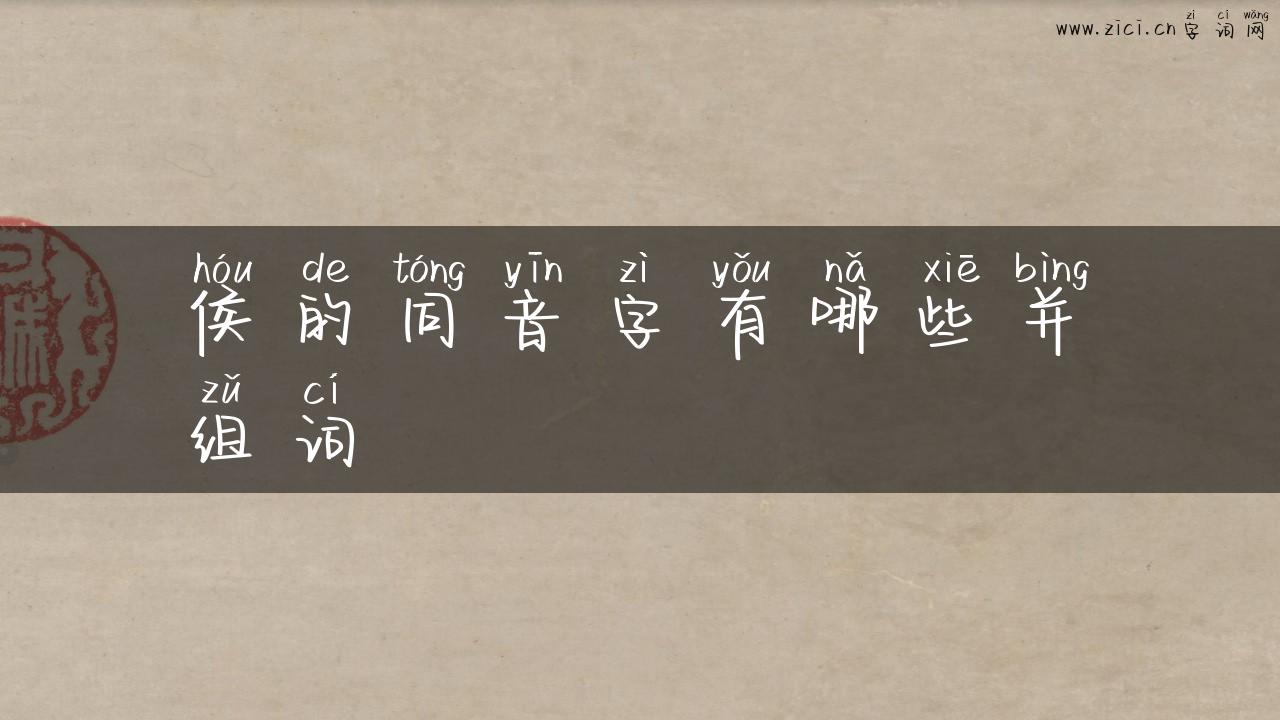 zì cí wǎng
www.zici.cn字词网
hóu de tóng yīn zì yǒu nǎ xiē bìng
侯的同音字有哪些并
zǔ cí
组词